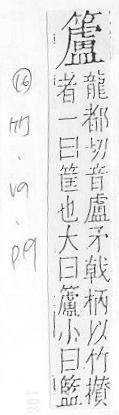 籚
龍都切音盧矛戟柄以竹攢
者一曰筐也大曰籚小曰籃
⑯
p9